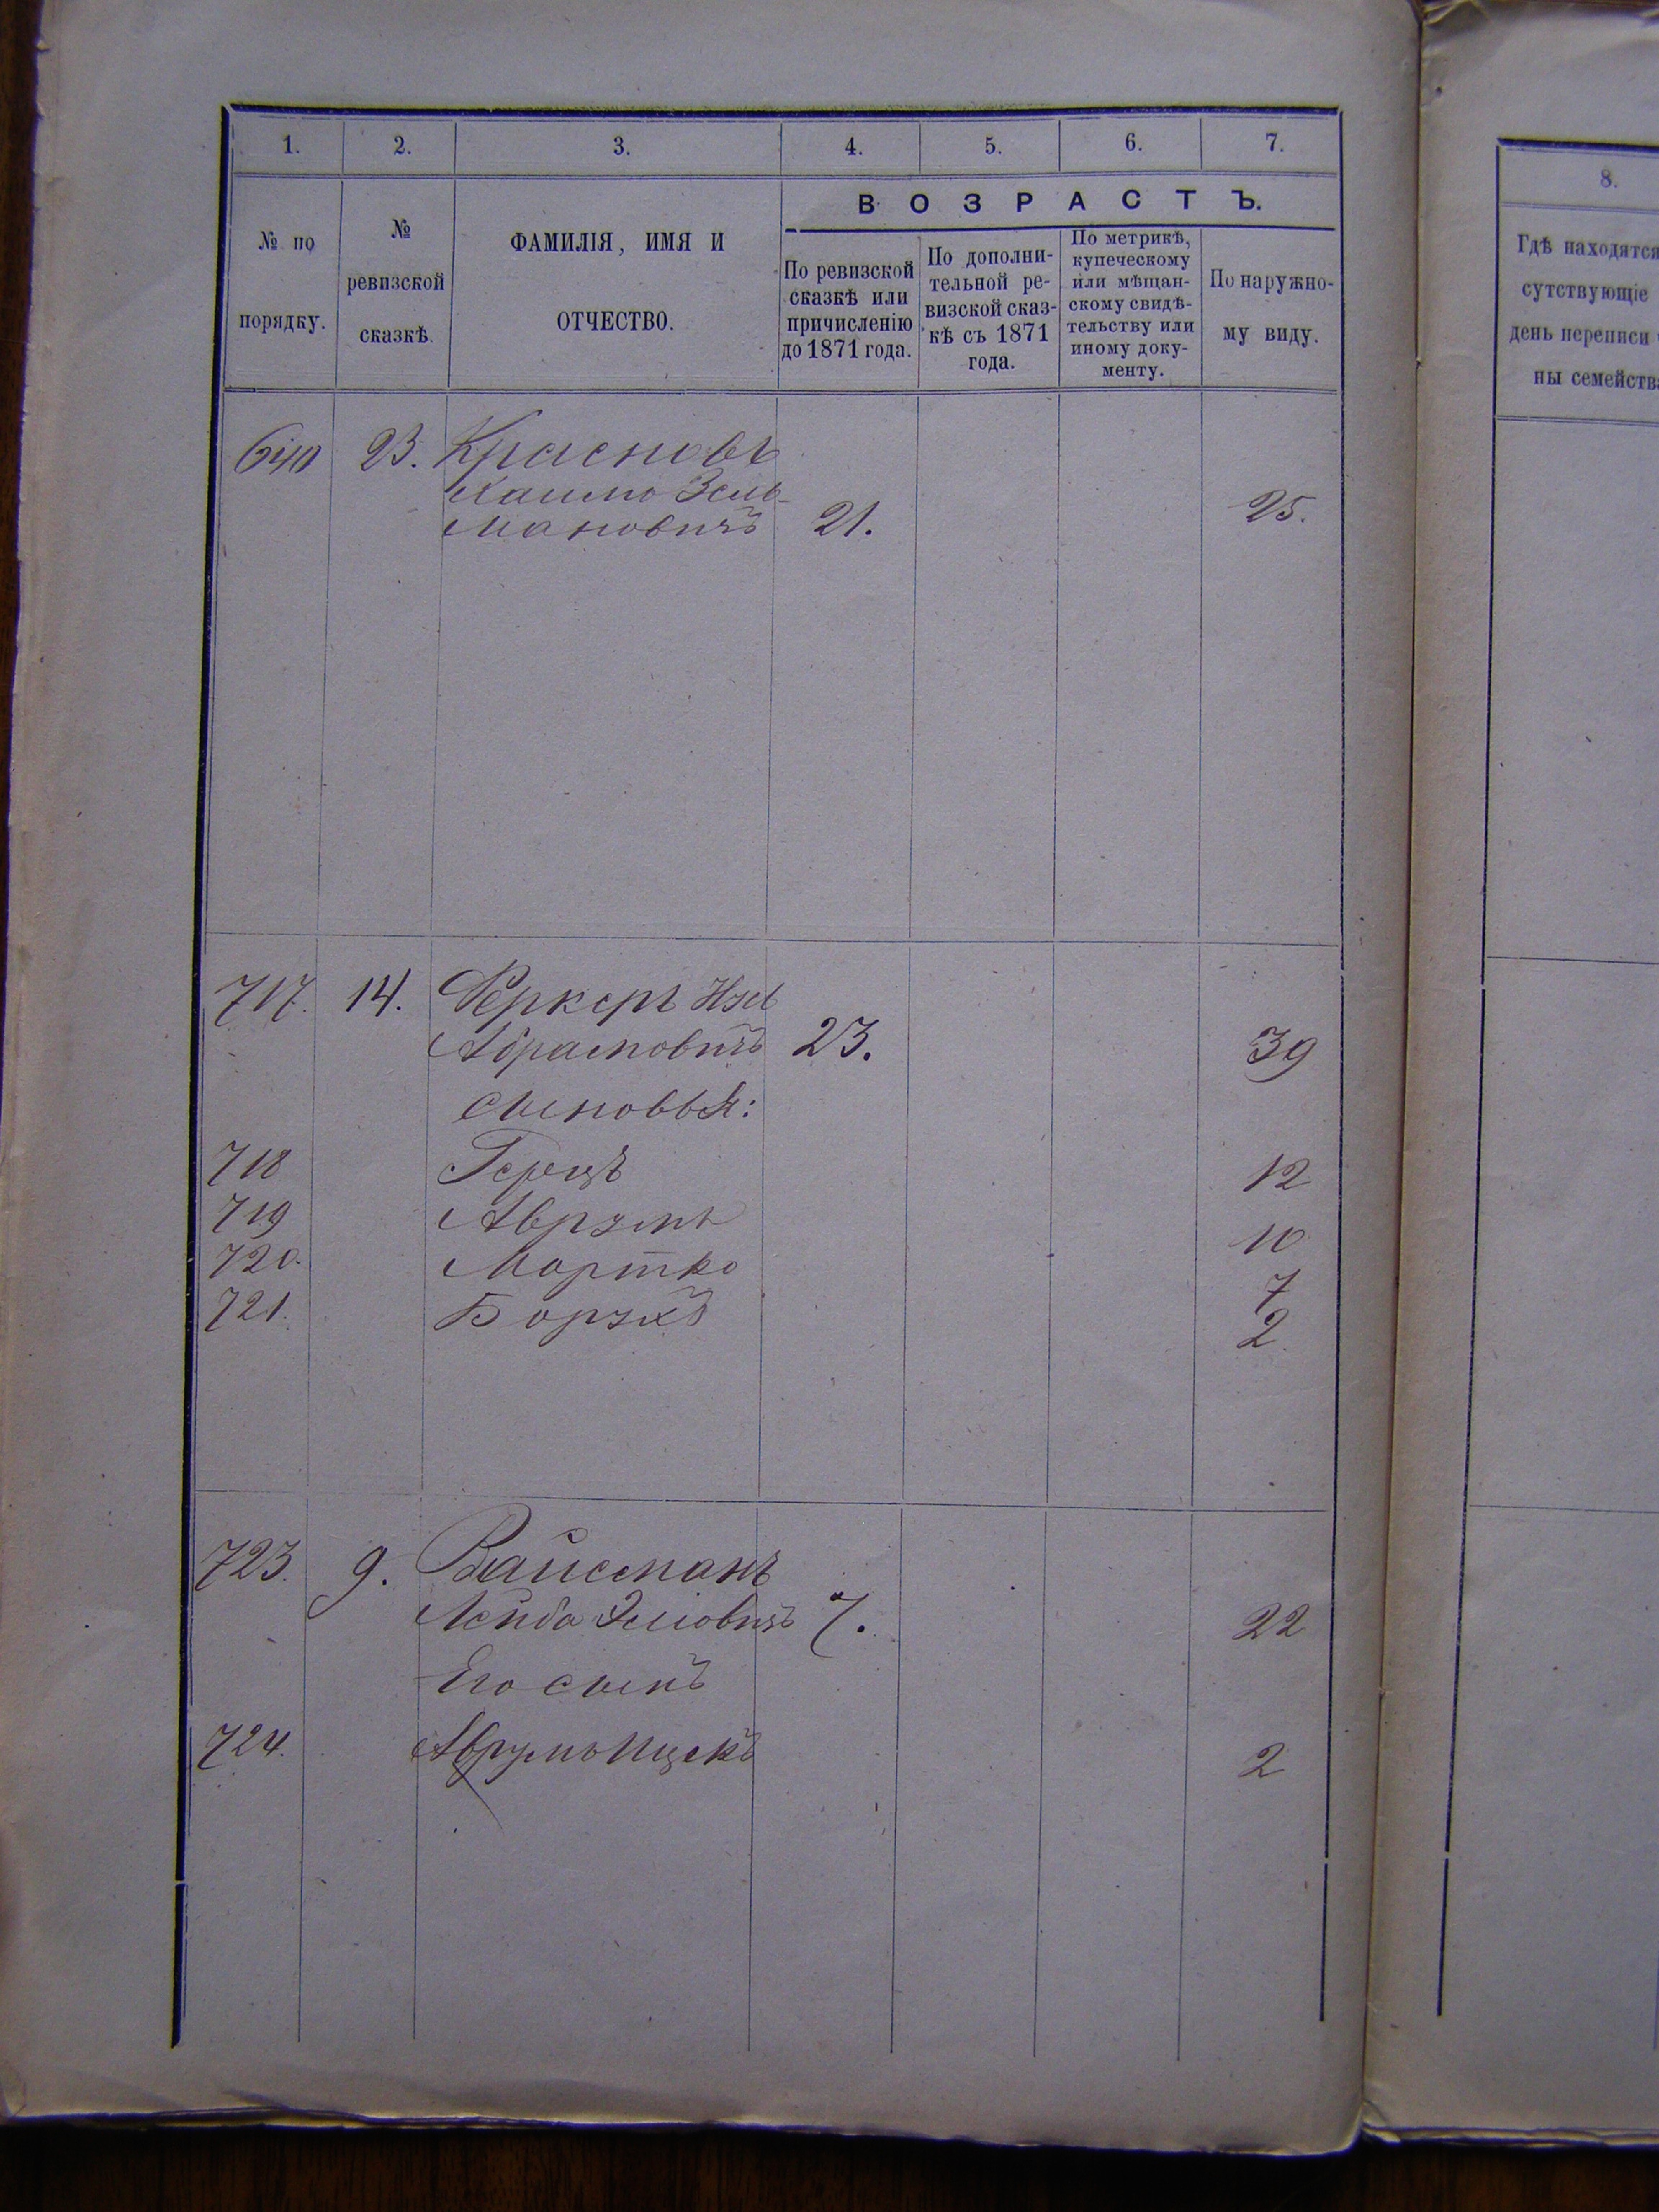 1. 2. 3. 4. 5. 6. 7.
ВОЗРАСТЪ.
№ по
порядку.
№
ревизской
сказкѣ.
ФАМИЛІЯ, ИМЯ И
ОТЧЕСТВО.
По ревизской
сказкѣ или
причисленію
до 1871 года.
По дополни-
тельной ре-
визской сказ-
кѣ съ 1871
года.
По метрикѣ,
купеческому
или мѣщан-
скому свидѣ-
тельству или
иному доку-
менту.
По наружно-
му виду.
640 23. Красновъ
Зель-
мановичъ 21. 25.
717. 14. Феркеръ
Абрамовичъ 23. 39
сыновья:
718 Герцъ 12
719 Аврумъ 10
720. Мортко 7
721. Борухъ 2
723. 9. Вайсманъ
Лейба Эліовичъ 7. 22
Его сынъ
724. Аврумъ Ицекъ 2
8.
Гдѣ находятся
сутствующіе
день переписи
ны семейств